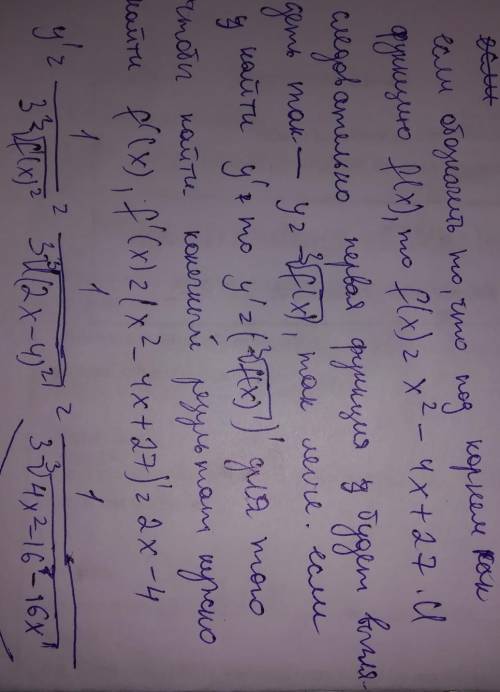 если обозначить то, что под корнем как
функцию f(x), то f(x) = x² - 4x + 27. А
следовательно первая функция y будет выгля-
деть так - y = ∛f(x), так легче. если
y найти y' то y' = (∛f(x))' для того
чтобы найти конечный результат нужно
найти f'(x), f'(x) = (x² - 4x + 27)' = 2x - 4
y' = 1/(3∛f'(x)²) = 1/(3∛(2x-4)²) = 1/(3∛4x²-16-16x)